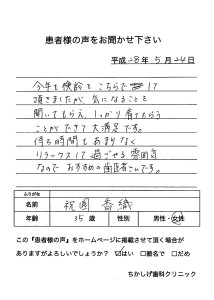 患者様の声をお聞かせ下さい
平成28年5月24日
今年も検診をこちらでして
頂きましたが、気になることを
聞いてもらえ、しっかり看てもらう
ことができて大満足です。
待ち時間もあまりなく
リラックスして過ごせる雰囲気
なのでおすすめの歯医者さんです。
ふりがな
名前 祝園 香織
年齢 35歳 性別 男性・女性
この『患者様の声』をホームページに掲載させて頂く場合が
ありますがよろしいでしょうか？ ☑はい □匿名で □だめ
ちかしげ歯科クリニック